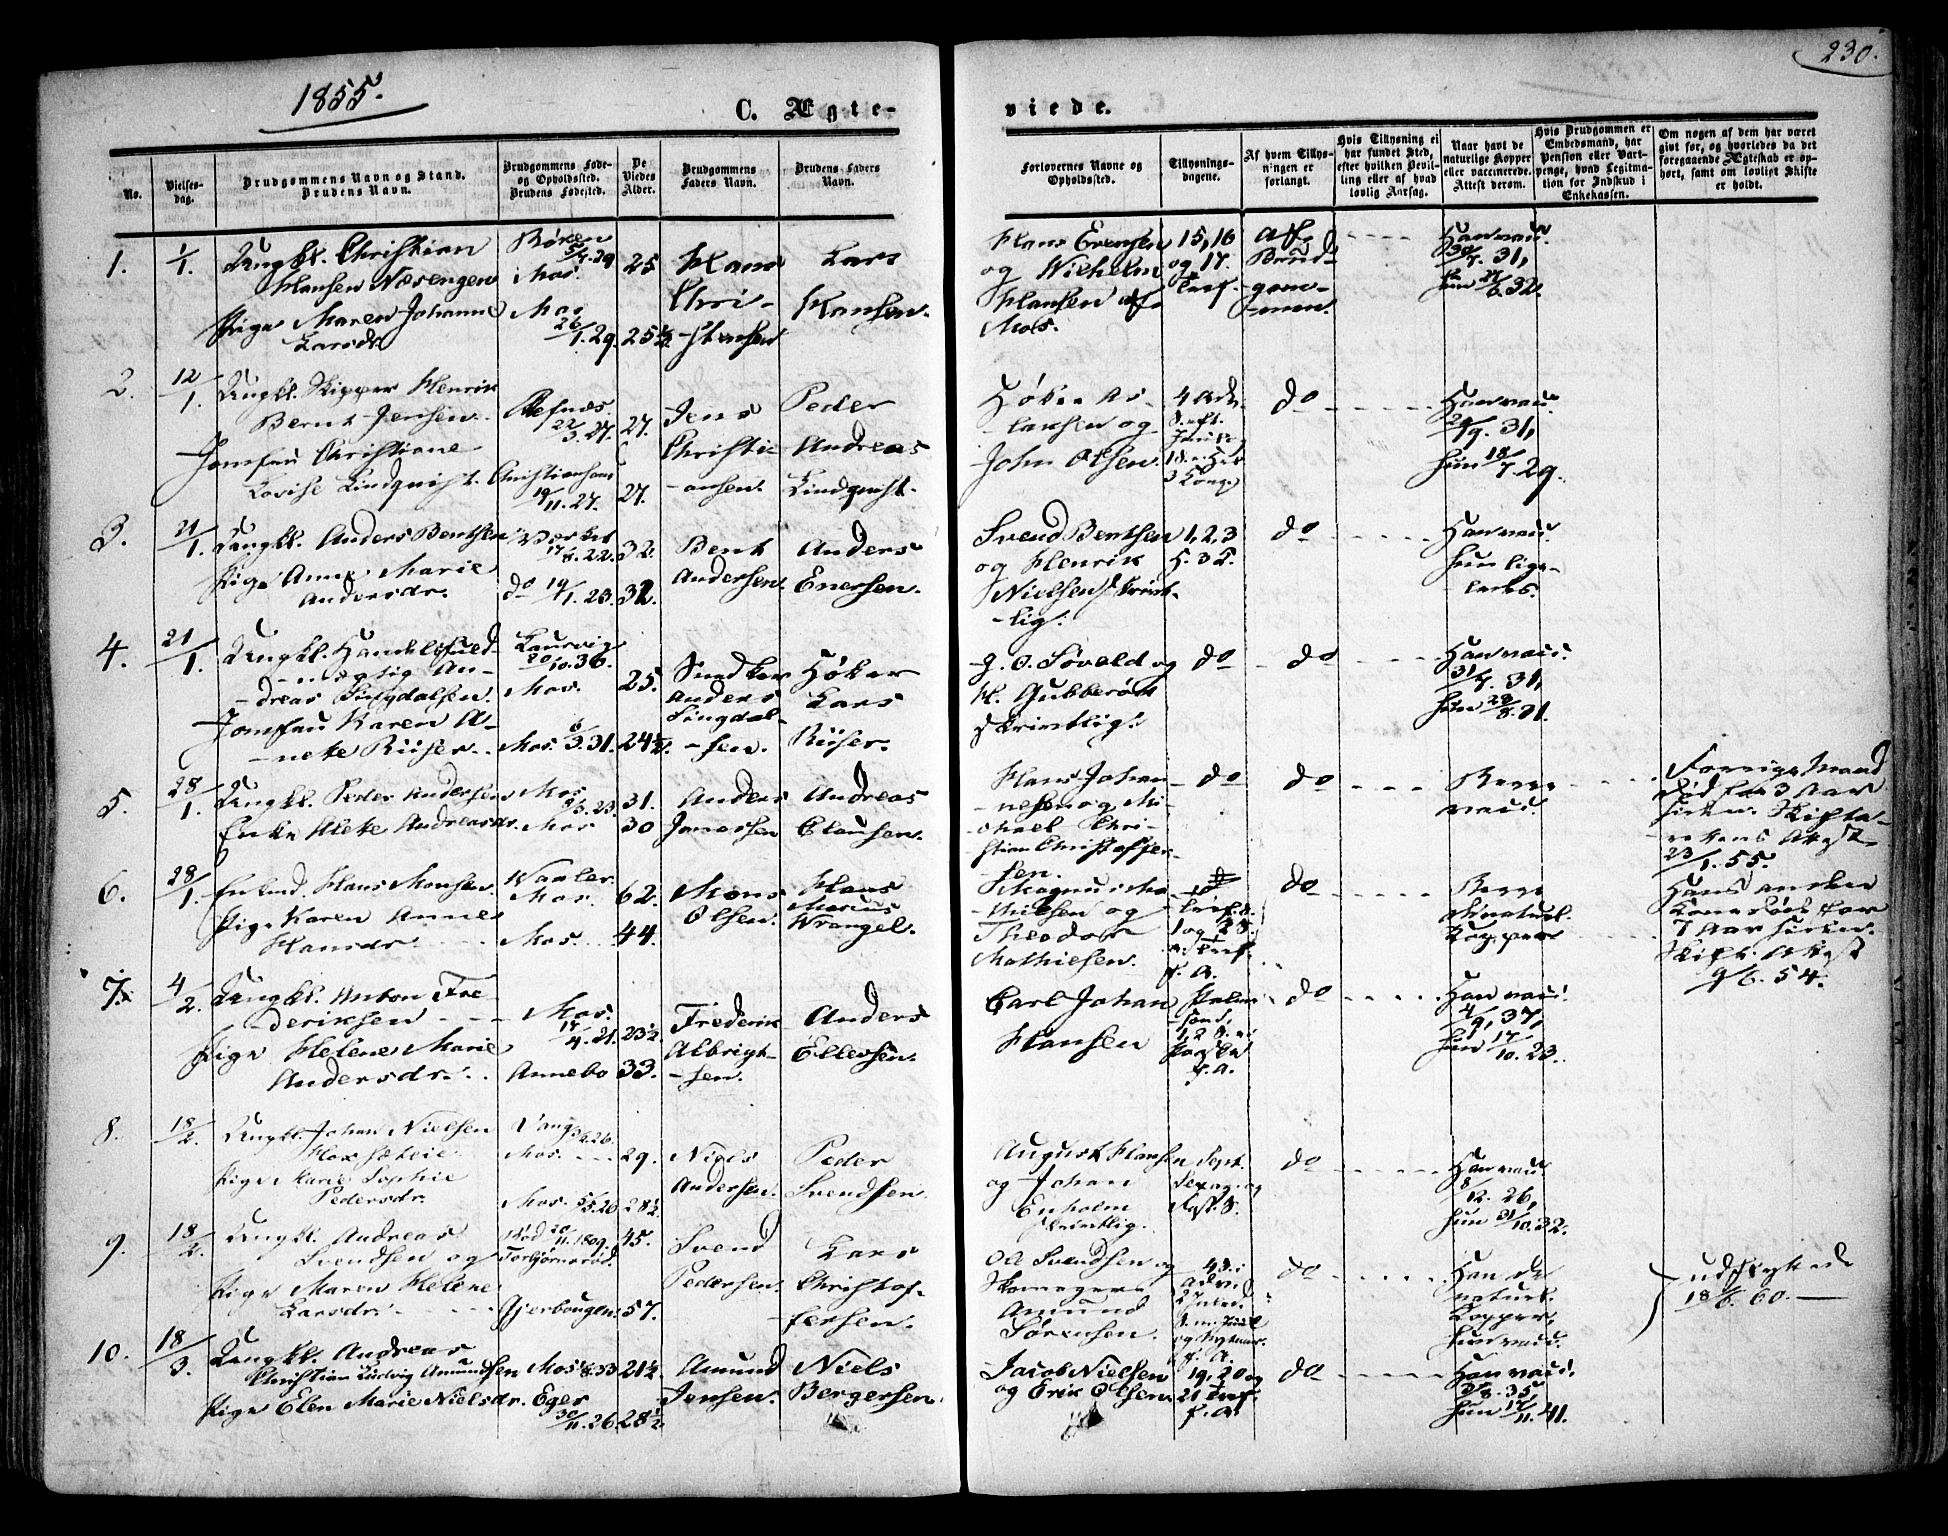 1855.
230.
C. Ægte-
viede.
No.
Vielses-
dag.
Brudgommens Navn og Stand.
Brudens Navn.
Brudgommens Føde-
og Opholdssted.
Brudens Fødested.
De
Viedes
Alder.
Brudgommens
Faders Navn.
Brudens Faders
Navn.
Forlovernes Navne og
Opholdssted.
Tillysnings-
dagene.
Af hvem Tillys-
ningen er
forlangt.
Hvis Tillysning ei
har fundet Sted,
efter hvilken Bevil-
ling eller af hvad
lovlig Aarsag.
Naar havt de
naturlige Kopper
eller vaccinerede.
Attest derom.
Hvis Brudgommen er
Embedsmand, har
Pension eller Vart-
penge, hvad Legitima-
tion for Indskud i
Enkekassen.
Om nogen af dem har været
givt før, og hvorledes da det
foregaaende Ægteskab er op-
hørt, samt om lovligt Skifte
er holdt.
1.
1/1.
Ungkl. Christian
Hansen Næsengen
Pige Maren Johanne
Larsdr.
Røken
5/7.29
Mos.
Mos
26/1.29.
25
25½
Hans
Chri-
-stensen
Lars
Hansen.
Hans Evensen
og Wilhelm
Hansen af
Mos.
15, 16
og 17.
Af
Brud-
gom-
-men.
Han vacc.
31,
32.
2.
12/1.
Ungkl. Skipper Henrik
Bernt Jensen.
Jomfru Christiane
Lovise Lindqvist.
Refnæs.
22/3.27.
Christiansand
19/11.27.
27.
27.
Jens
Christi-
-ansen.
Peder
Andreas
Lindqvist.
og
John Olsen.
do
Han vacc.
29/9. 31,
Hun 18/7. 29.
3.
21/1.
Ungkl. Anders Bentsen
Pige Anne Marie
Andersdr.
Værket
17/8.22.
do 19/1. 23.
32.
32.
Bent
Andersen.
Anders
Enersen.
Svend Bentsen
og Henrik
Nielsen skrivt-
-lig.
1, 2, 3
do
Han vacc.
Hun lige-
-ledes.
4.
21/1.
Ungkl. Handelsfuld-
-mægtig An-
-dreas Singdalsen.
Jomfru Karen A-
-nete Riiser.
Laurvig
20/10.36.
Mos.
Mos. 6/3.31.
25.
24½.
Snedker
Anders
Singdal-
-sen.
Høker
Lars
Riiser.
Skrivtlig.
do
do
Han vacc.
31/7. 31,
Hun
5.
28/1.
Ungkl. Peder Andersen
Enke Alete Andreasdr.
Mos
Mos
31.
30
Anders
Jonassen
Andreas
Clausen.
Hans Johan-
-nesen og Mi-
-chael Chri-
-stian Christoffer-
sen.
do
do
Begge
vacc.
Forrige Mand
død for 3 Aar
siden. Skifte-
-rettens Attest
23/1. 55.
6.
28/1.
Enkmd. Hans Monsen.
Pige Karen Anne
Hansdr.
Vaaler.
Mos.
Mos.
62.
44.
Mons
Olsen.
Hans
Marius
Wrangel.
Magnus Ma-
-thiesen og
Theodor
Mathiesen.
do
Begge
naturl.
Kopper
Hans anden
Kone død for
7 Aar siden.
Skift. Attest
9/6. 54.
7.
4/2.
Ungkl. Anton Fre-
-deriksen
Pige Helene Marie
Andersdr.
Mos.
Annebo
23½
33.
Frederik
Albrigt-
-sen.
Anders
Ellevsen.
Carl Johan
Hansen
do
Han vacc.
4/9. 37,
Hun 17/10. 23.
8.
18/2.
Ungkl. Johan Nielsen
Pige Marie Sophie
Pedersdr.
Vang
Mos.
Mos. 5/5.26
29.
28½
Niels
Andersen.
Peder
Svendsen.
August Hansen
og Johan
Enholm
skrivtlig.
Sept.
Sexag. og
Fast. S.
do
Han vacc.
8/12. 26,
Hun 31/10. 32.
9.
18/2.
Ungkl. Andreas
Svendsen og
Pige Maren Helene
Larsdr.
Torbjørnsrød.
Gjerbougen
45.
57.
Svend
Pedersen.
Lars
Christof-
-fersen.
Ole Svendsen og
Skomager
Amund
Sørensen.
do
Han de
naturl.
Kopper,
Hun vacc.
udskrevet
18/6. 60.
10.
18/3.
Ungkl. Andreas
Christian Ludvig Amundsen
Pige Elen Marie Nielsdr.
Mos
Eger
30/11.26.
21½
28½
Amund
Jensen.
Niels
Bergersen.
Jacob Nielsen
og Erik Olsen.
19, 20 og
21
do
Han vacc.
35,
Hun 17/11. 41.